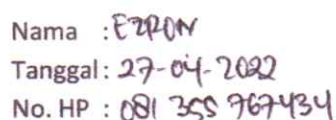 Nama : EZRON
Tanggal : 27-04-2022
No. HP : 081 355 767434